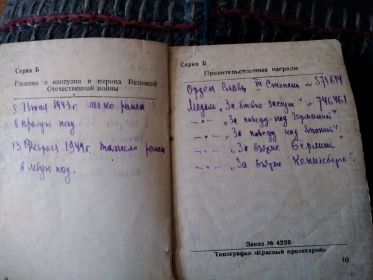 Серия Б
Ранения и контузии в период Великой
Отечественной войны
5 Июля 1943г. легко ранен
в правую
13 Февраля 1944г. тяжело ранен
в левую
Серия Б
Правительственные награды
Орден Славы III Степени № 571614
Медаль „За боевые заслуги" № 746461
—„— „За победу над Германией"
—„— „За победу над Японией"
—„— „За взятие Берлина"
—„— „За взятие Кенигсберга"
Заказ № 4328
Типография «Красный пролетарий»
10